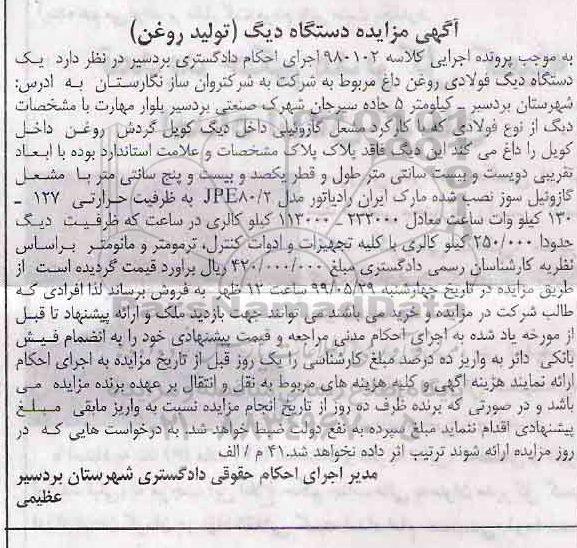 آگهی مزایده دستگاه دیگ (تولید روغن)
به موجب پرونده اجرایی کلاسه ۹۸۰۱۰۲ اجرای احکام دادگستری بردسیر در نظر دارد یک
دستگاه دیگ فولادی روغن داغ مربوط به شرکت به شرکتروان ساز نگارستان به ادرس:
شهرستان بردسیر _ کیلومتر ۵ جاده سیرجان شهرک صنعتی بردسیر بلوار مهارت با مشخصات
دیگ از نوع فولادی که با کارکرد مشعل گازوئیلی داخل دیگ کویل گردش روغن داخل
کویل را داغ می کند این دیگ فاقد پلاک پلاک مشخصات و علامت استاندارد بوده با ابعاد
تقریبی دویست و بیست سانتی متر طول و قطر یکصد و بیست و پنج سانتی متر با مشعل
گازوئیل سوز نصب شده مارک ایران رادیاتور مدل JPE۸۰/۲ به ظرفیت حرارتی ۱۲۷ _
۱۳۰ کیلو وات ساعت معادل ۲۳۲۰۰۰ _ ۱۱۳۰۰۰ کیلو کالری در ساعت که ظرفیت دیگ
حدودا ۲۵۰/۰۰۰ کیلو کالری با کلیه تجهیزات و ادوات کنترل، ترمومتر و مانومتر براساس
نظریه کارشناسان رسمی دادگستری مبلغ ۴۲۰/۰۰۰/۰۰۰ ریال براورد قیمت گردیده است از
طریق مزایده در تاریخ چهارشنبه ۹۹/۰۵/۲۹ ساعت ۱۲ ظهر به فروش برساند لذا افرادی که
طالب شرکت در مزایده و خرید می باشند می توانند جهت بازدید ملک و ارائه پیشنهاد تا قبل
از مورخه یاد شده به اجرای احکام مدنی مراجعه و قیمت پیشنهادی خود را به انضمام فیش
بانکی دائر به واریز ده درصد مبلغ کارشناسی را یک روز قبل از تاریخ مزایده به اجرای احکام
ارائه نمایند هزینه اگهی و کلیه هزینه های مربوط به نقل و انتقال بر عهده برنده مزایده می
باشد و در صورتی که برنده ظرف ده روز از تاریخ انجام مزایده نسبت به واریز مابقی مبلغ
پیشنهادی اقدام ننماید مبلغ سپرده به نفع دولت ضبط خواهد شد. به درخواست هایی که در
روز مزایده ارائه شوند ترتیب اثر داده نخواهد شد.۴۱ م / الف
مدیر اجرای احکام حقوقی دادگستری شهرستان بردسیر
عظیمی